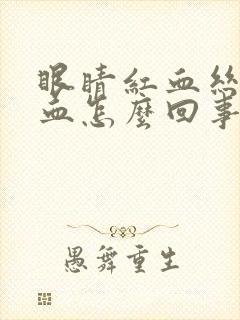 眼睛紅血絲
血怎麼回事
愚舞重生